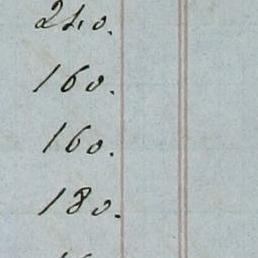 240.
160.
160.
180.